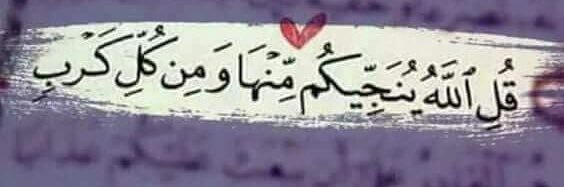 قُلِ ٱللَّهُ يُنَجِّيكُم مِّنْهَا وَ مِن كُلِّ كَرْبٍ